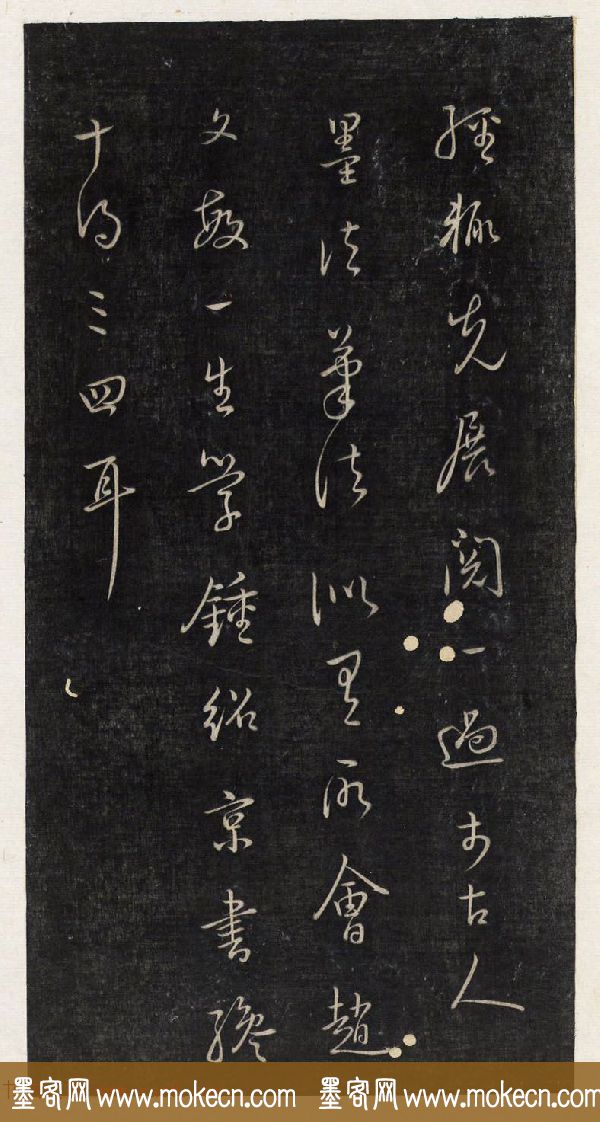 經輒先展閱一過於古人
墨法筆法似有所會趙
文敏一生學鍾紹京書纔
十得三四耳
墨客网 www.mokecn.com 墨客网 www.mokecn.com